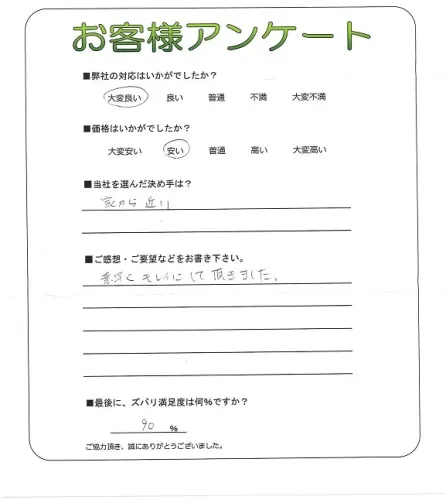 お客様アンケート
■弊社の対応はいかがでしたか?
大変良い 良い 普通 不満 大変不満
■価格はいかがでしたか?
大変安い 安い 普通 高い 大変高い
■当社を選んだ決め手は?
家から近い
■ご感想・ご要望などをお書き下さい。
キレイにして頂きました。
■最後に、ズバリ満足度は何%ですか?
90 %
ご協力頂き、誠にありがとうございました。